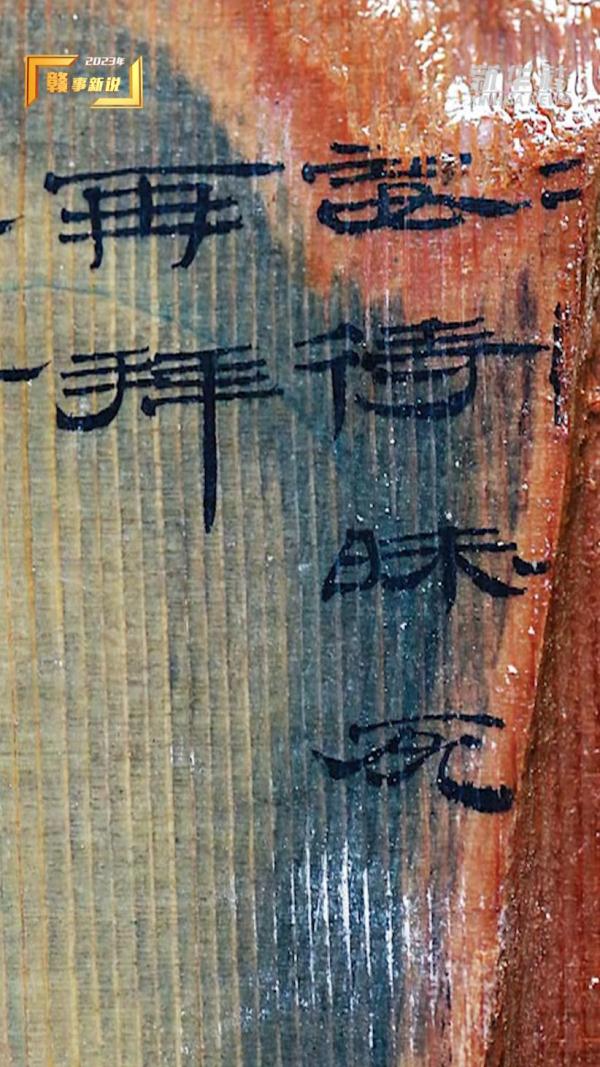 2023年
赣事新说
待昧死
再拜